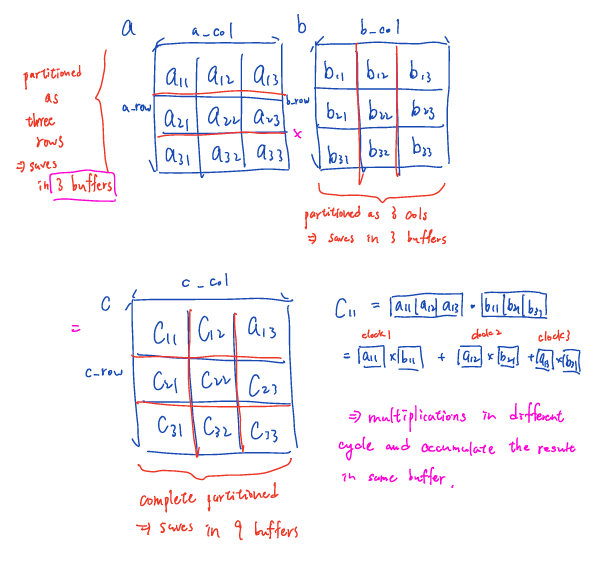 a
a_col
b
b_col
partitioned
as
three
rows
⇒ saves
in 3 buffers
a_row
a11 a12 a13
a21 a22 a23
a31 a32 a33
×
b_row
b11 b12 b13
b21 b22 b23
b31 b32 b33
partitioned as 3 cols
⇒ saves in 3 buffers
=
c
c_col
c_row
C11 C12 a13
C21 C22 C23
C31 C32 C33
complete partitioned
⇒ saves in 9 buffers
C11 = a11 a12 a13 · b11 b21 b31
clock1 clock2 clock3
= a11 × b11 + a12 × b21 + a13 × b31
⇒ multiplications in different
cycle and accumulate the result
in same buffer.